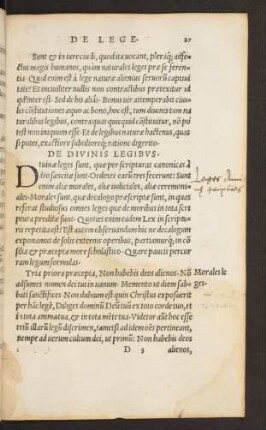 DE LEGE. 27
Sunt & in iure ciuili, quod ita uocant, pleraq; affe-
ctus magis humanos, quàm naturales leges præ se feren-
tia. Quid enim est à lege naturæ alienius seruorũ captiui
tate? Et incuditer nullo non contractibus prætexitur id
qd̃ inter est. Sed de his aliàs. Bonus uir attemperabit ciui-
les cõstitutiones æquo ac bono, hoc est, tum diuinis tum na
turalibus legibus, contra quas quicquid cõstituitur, nõ po
test non iniquum esse. Et de legibus naturæ hactenus, quas
si potes, exactiore subtiliorq; ratione digerito.
DE DIVINIS LEGIBVS.
Diuinæ leges sunt, quæ per scripturas canonicas à
deo sancitæ sunt. Ordines earũ tres fecerunt: Sunt
enim aliæ morales, aliæ iudiciales, aliæ ceremoni-
ales. Morales sunt, quæ decalogo præscriptæ sunt, in quas
referat studiosus omnes leges quæ de moribus in tota scri
ptura proditæ sunt. Quoties enim eadem Lex in scriptu-
ris repetita est? Est autem obseruandum hic ne decalogum
exponamus de solis externis operibus, partiamurq; in cõ
silia & præcepta more scholastico. Quare paucis percur
ram legum formulas.
Tria priora præcepta, Non habebis deos alienos. Nõ
adsumes nomen dei tui in uanum. Memento ut diem sab-
bati sanctifices. Non dubium est quin Christus exposuerit
per hãc legẽ, Diliges dominũ Deũ tuũ ex toto corde tuo, et i
i tota anima tua, & in tota mẽte tua. Videtur aũt hoc esse
triũ illarũ legũ discrimen, tametsi ad idem oẽs pertineant,
nempe ad uerum cultum dei, ut primũ: Non habebis deos
D 3 alienos,
Morales le
ges.
Leges